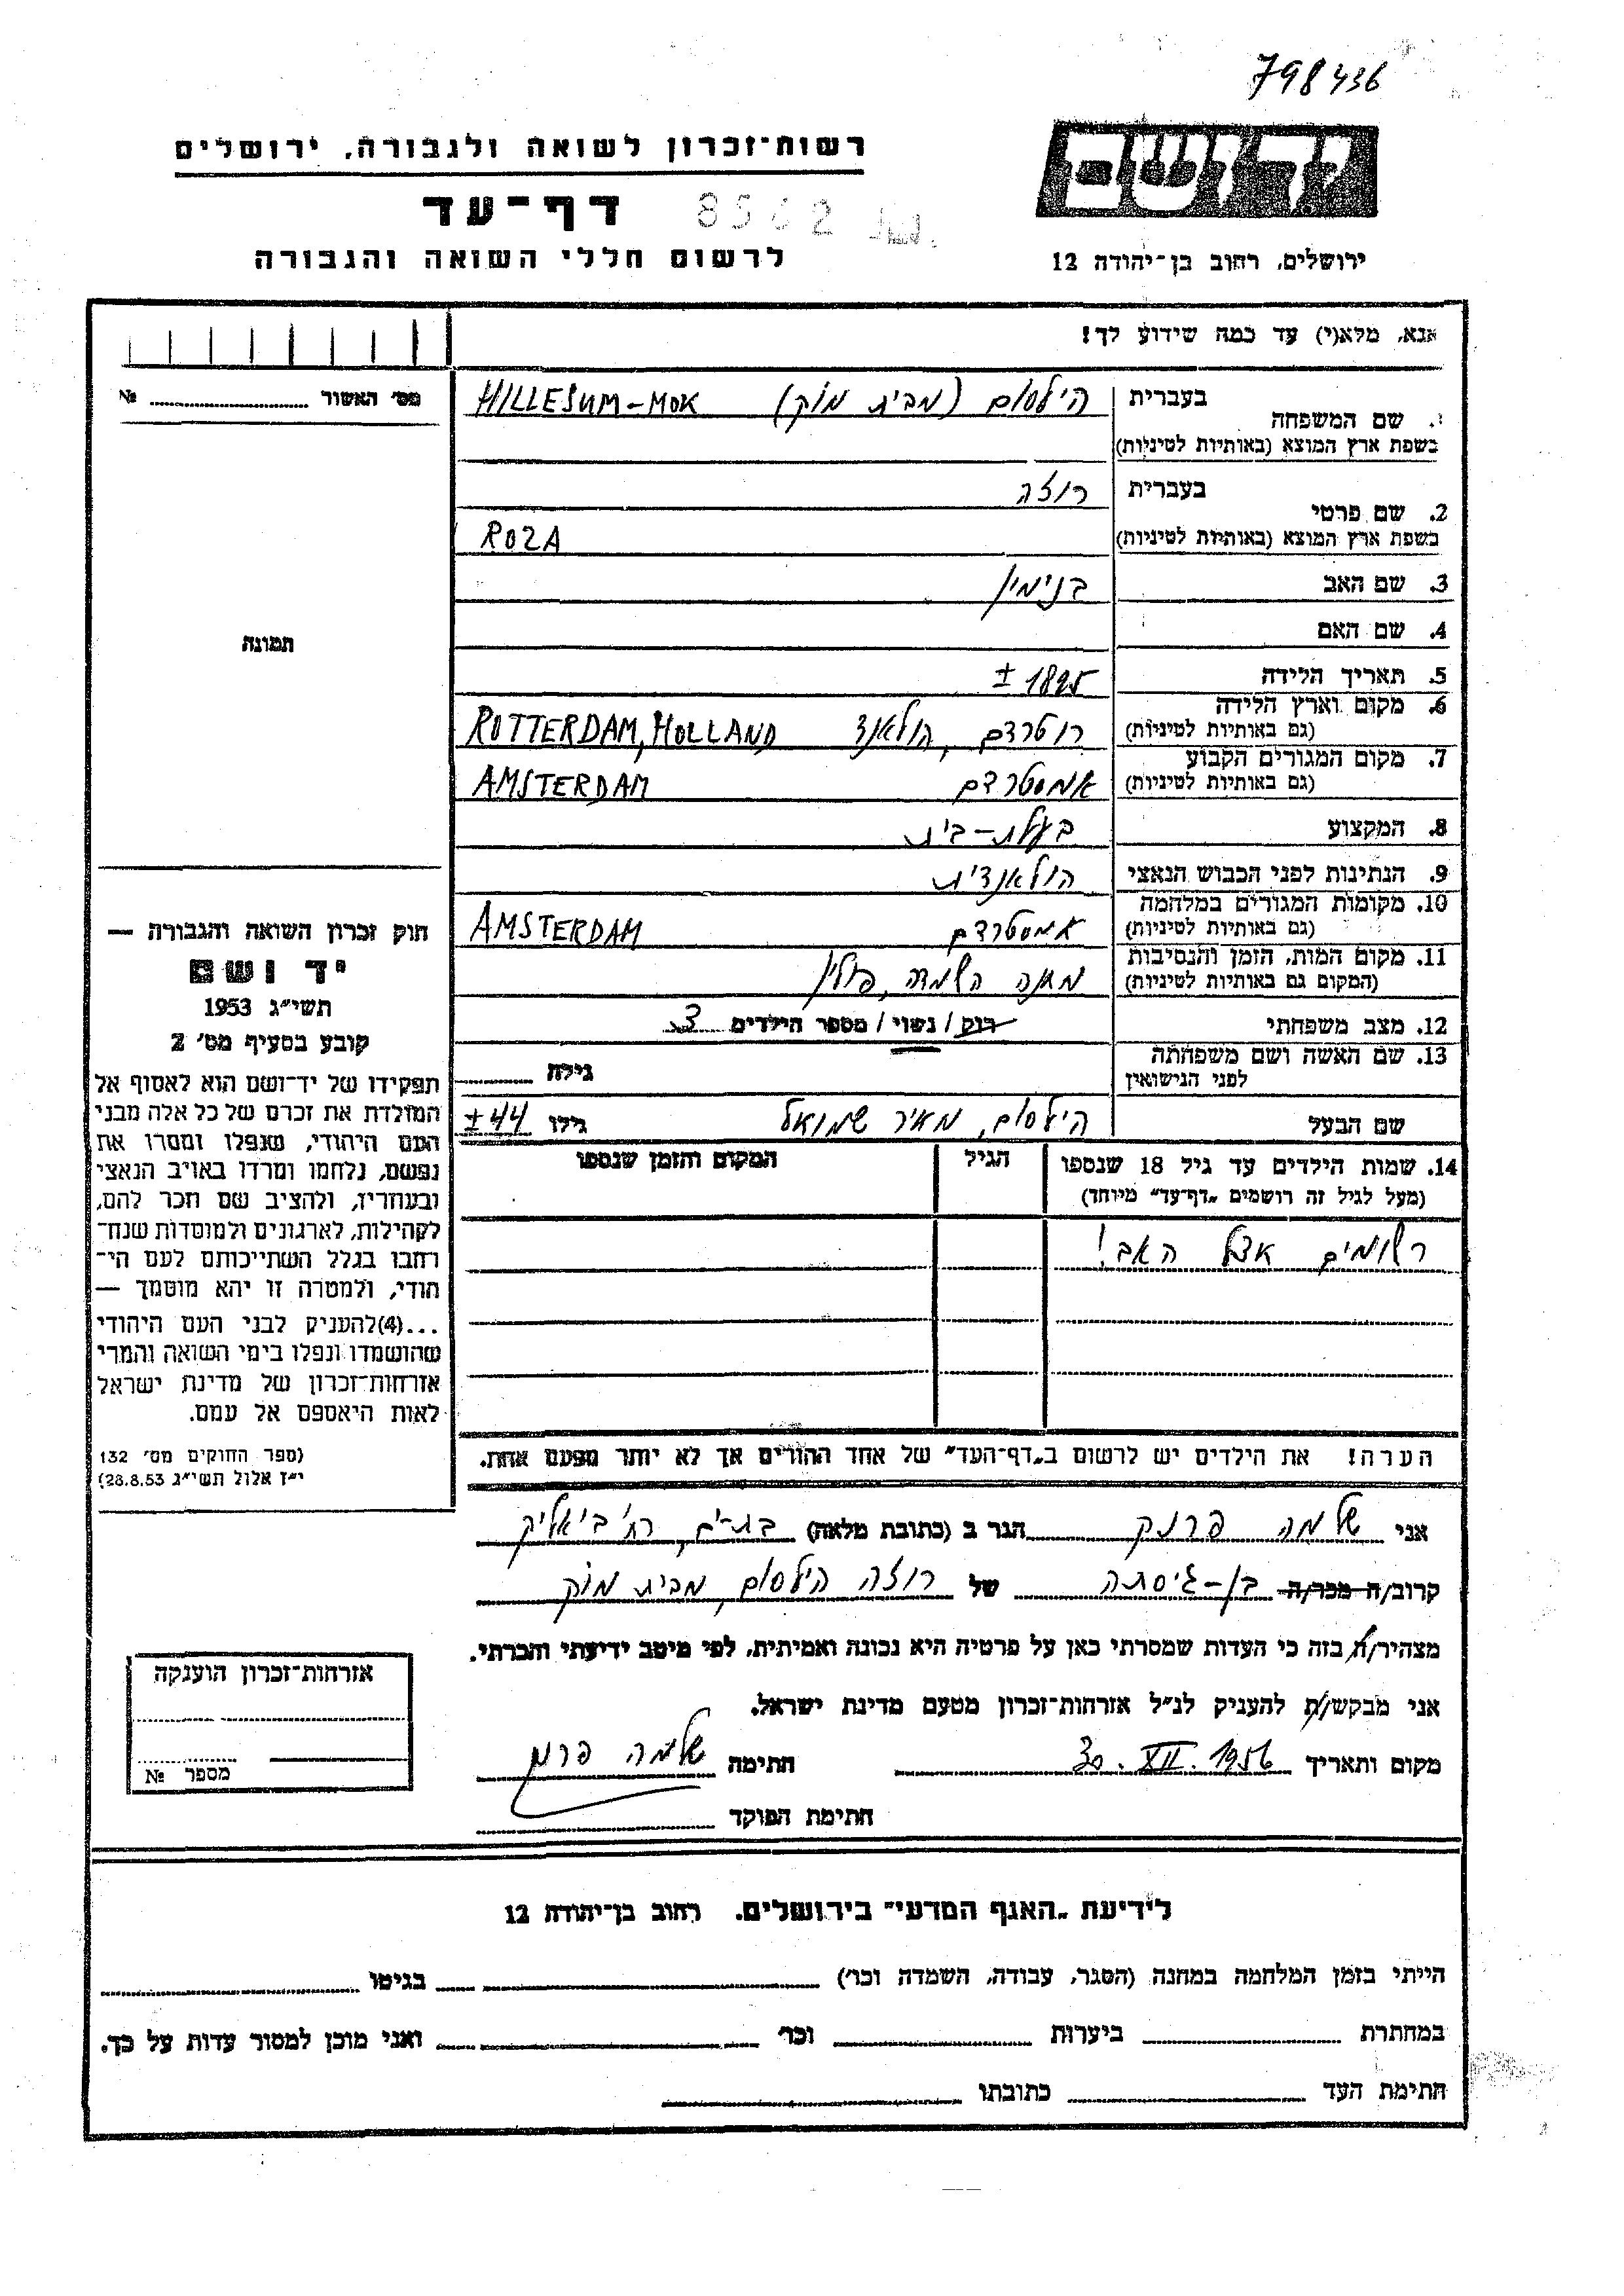 798436
רשות־זכרון לשואה ולגבורה, ירושלים
יד ושם
דף־עד
8562
לרשום חללי השואה והגבורה
ירושלים, רחוב בן־יהודה 12
אנא, מלא(י) עד כמה שידוע לך!
מס׳ האשור ........ №
1. שם המשפחה
בעברית הילסום (מבית מוק) HILLESUM-MOK
בשפת ארץ המוצא (באותיות לטיניות)
2. שם פרטי
בעברית רוזה
בשפת ארץ המוצא (באותיות לטיניות) ROZA
3. שם האב בנימין
4. שם האם
5. תאריך הלידה ± 1895
6. מקום וארץ הלידה
(גם באותיות לטיניות) רוטרדם, הולאנד ROTTERDAM, HOLLAND
7. מקום המגורים הקבוע
(גם באותיות לטיניות) אמסטרדם AMSTERDAM
8. המקצוע בעלת-בית
9. הנתינות לפני הכבוש הנאצי הולאנדית
10. מקומות המגורים במלחמה
(גם באותיות לטיניות) אמסטרדם AMSTERDAM
11. מקום המות, הזמן והנסיבות
(המקום גם באותיות לטיניות) מחנה השמדה, פולין
12. מצב משפחתי רוק/נשוי/מספר הילדים 3
13. שם האשה ושם משפחתה
לפני הנישואין
גילה ........
שם הבעל הילסום, מאיר שמואל גילו ±44
14. שמות הילדים עד גיל 18 שנספו
(מעל לגיל זה רושמים „דף־עד״ מיוחד)
הגיל
המקום והזמן שנספו
רשומים אצל האב!
הערה! את הילדים יש לרשום ב„דף־העד״ של אחד ההורים אך לא יותר מפעם אחת.
תמונה
חוק זכרון השואה והגבורה —
יד ושם
תשי״ג 1953
קובע בסעיף מס׳ 2
תפקידו של יד־ושם הוא לאסוף אל
המולדת את זכרם של כל אלה מבני
העם היהודי, שנפלו ומסרו את
נפשם, נלחמו ומרדו באויב הנאצי
ובעוזריו, ולהציב שם וזכר להם,
לקהילות, לארגונים ולמוסדות שנח־
רבו בגלל השתייכותם לעם הי־
הודי, ולמטרה זו יהא מוסמך —
...(4)להעניק לבני העם היהודי
שהושמדו ונפלו בימי השואה והמרי
אזרחות־זכרון של מדינת ישראל
לאות היאספם אל עמם.
(ספר החוקים מס׳ 132
י״ז אלול תשי״ג 28.8.53)
אני שלמה פרנק הגר ב (כתובת מלאה) בת-ים, רח׳ ביאליק
קרוב/ה מכר/ה בן-גיסתה של רוזה הילסום, מבית מוק
מצהיר/ה בזה כי העדות שמסרתי כאן על פרטיה היא נכונה ואמיתית, לפי מיטב ידיעתי והכרתי.
אני מבקש/ת להעניק לנ״ל אזרחות־זכרון מטעם מדינת ישראל.
מקום ותאריך 30. XII. 1956 חתימה שלמה פרנק
חתימת הפוקד
אזרחות־זכרון הוענקה
מספר №
לידיעת „האגף המדעי״ בירושלים, רחוב בן־יהודה 12
הייתי בזמן המלחמה במחנה (הסגר, עבודה, השמדה וכו׳) ........ בגיטו ........
במחתרת ........ ביערות ........ וכו׳ ........ ואני מוכן למסור עדות על כך.
חתימת העד ........ כתובתו ........